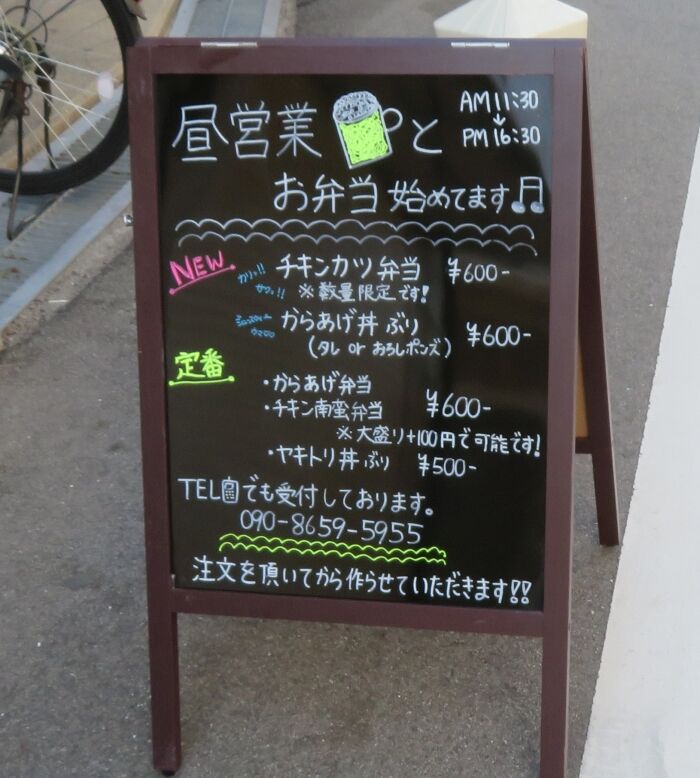 昼営業と
AM 11:30
↓
PM 16:30
お弁当 始めてます♫
NEW
カリッ!!
サクッ!!
チキンカツ弁当 ¥600-
※数量限定です!
からあげ丼ぶり ¥600-
(タレ or おろしポンズ)
定番
・からあげ弁当
・チキン南蛮弁当 ¥600-
※大盛り+100円で可能です!
・ヤキトリ丼ぶり ¥500-
TELでも受付しております。
090-8659-5955
注文を頂いてから作らせていただきます!!